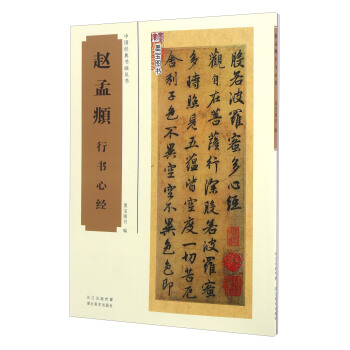 中国经典书画丛书
赵孟頫
行书心经
般若波羅蜜多心經
觀自在菩薩行深般若波羅蜜
多時照見五蘊皆空度一切苦厄
舍利子色不異空空不異色色即
长江出版传媒
湖北美术出版社